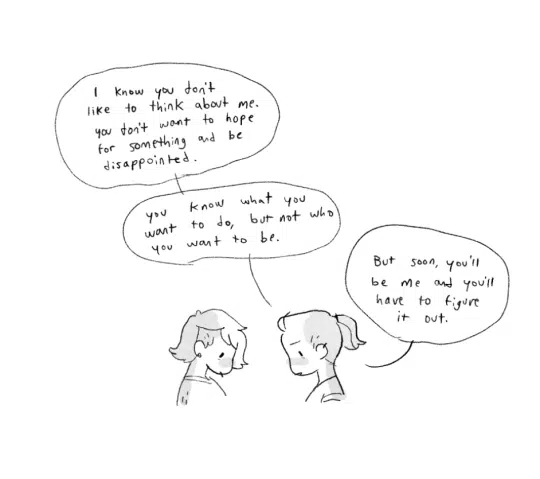 I know you don't
like to think about me.
you don't want to hope
for something and be
disappointed.
you know what you
want to do, but not who
you want to be.
But soon, you'll
be me and you'll
have to figure
it out.